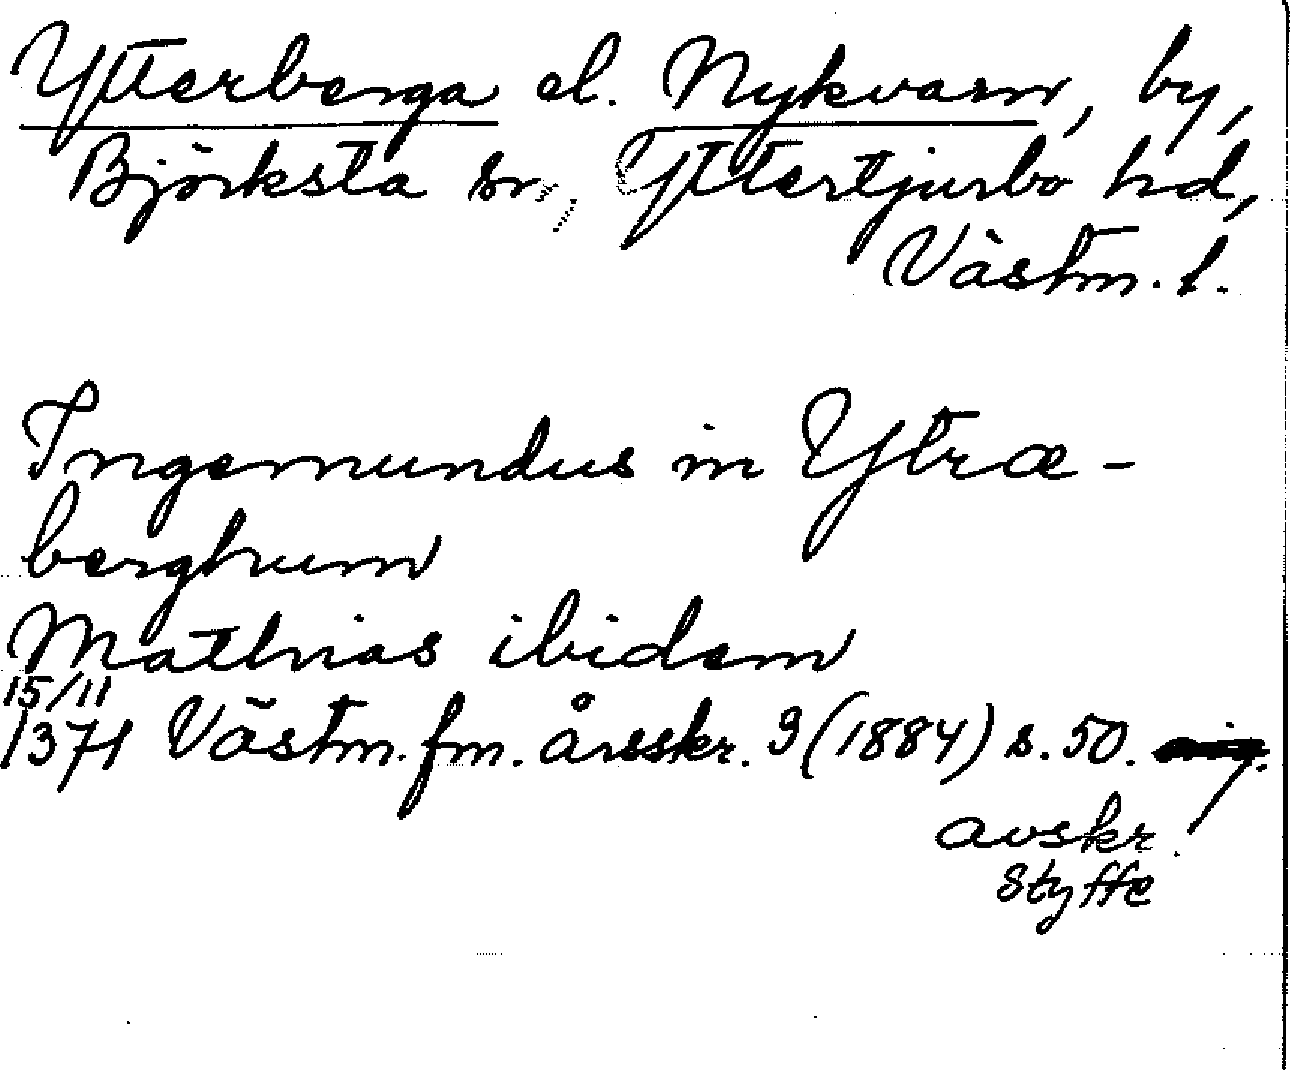 Ytterberga el. Nykvarn, by,
Björksta sn, Yttertjurbo hd,
Västm. l.
Ingemundus in Ytræ-
berghum
Mathias ibidem
15/11
1371 Västm. fm. årsskr. 3 (1884) s. 50. orig.
avskr.
Styffe